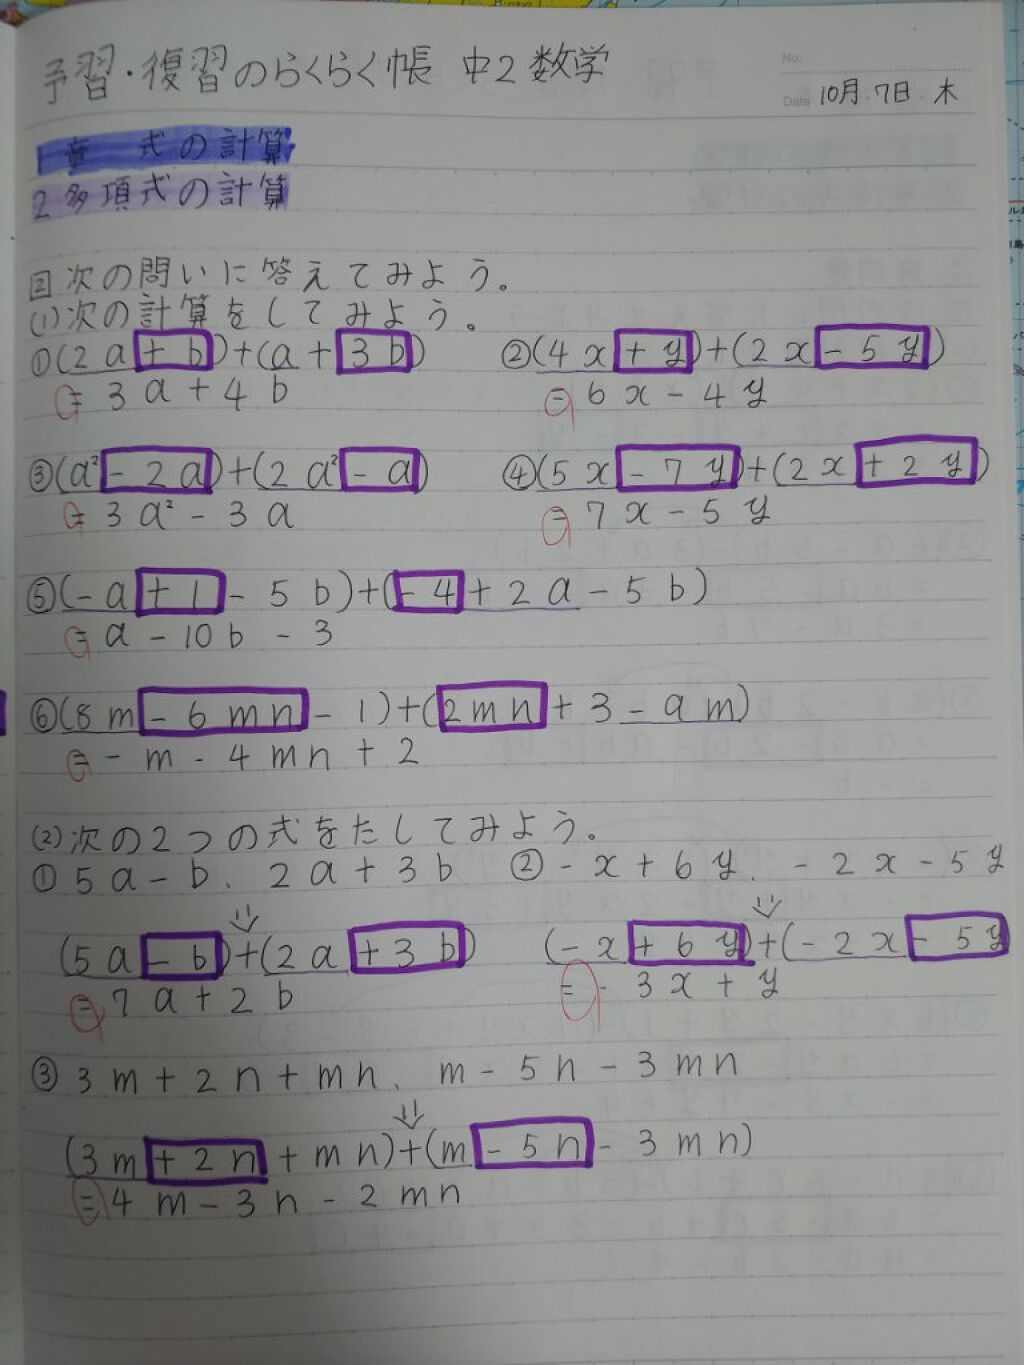 予習・復習のらくらく帳 中2数学
No.
Date 10月 7日 木
1章 式の計算
2多項式の計算
②次の問いに答えてみよう。
(1)次の計算をしてみよう。
①(2a+b)+(a+3b) ②(4x+y)+(2x-5y)
=3a+4b =6x-4y
③(a²-2a)+(2a²-a) ④(5x-7y)+(2x+2y)
=3a²-3a =7x-5y
⑤(-a+1-5b)+(-4+2a-5b)
=a-10b-3
⑥(8m-6mn-1)+(2mn+3-9m)
=-m-4mn+2
(2)次の2つの式をたしてみよう。
①5a-b、2a+3b ②-x+6y、-2x-5y
(5a-b)+(2a+3b) (-x+6y)+(-2x-5y
=7a+2b =-3x+y
③3m+2n+mn、m-5n-3mn
(3m+2n+mn)+(m-5n-3mn)
=4m-3n-2mn